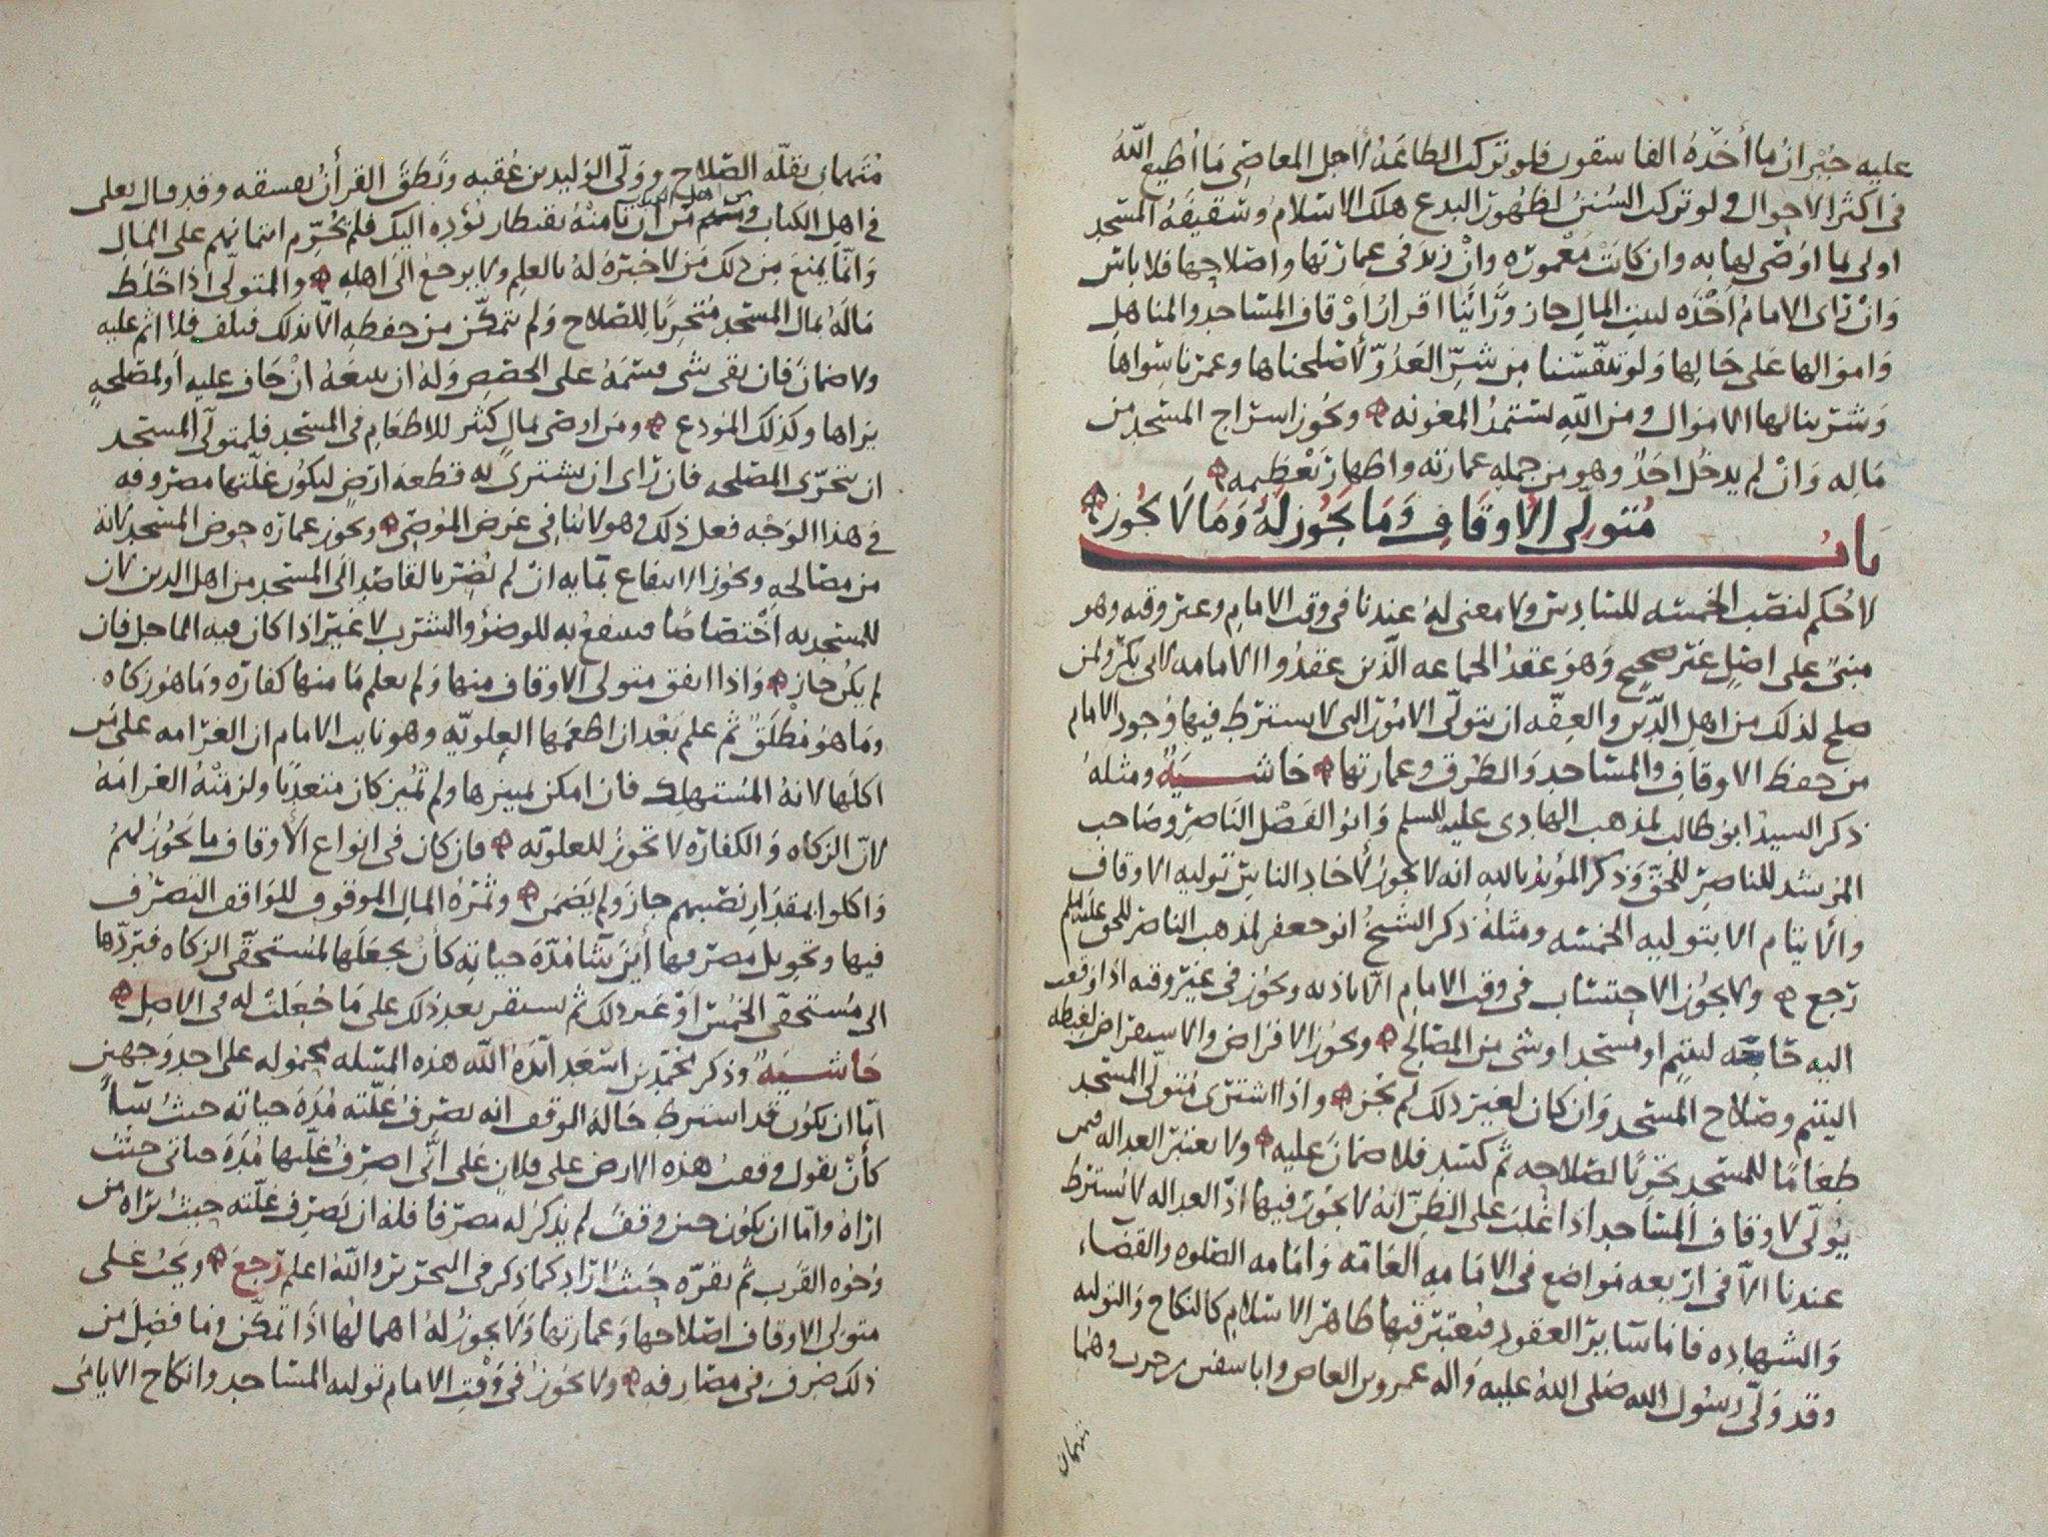 عليه جبران ما أخذه الفاسقون فلو تركت الطاعة لاجل المعاصي ما أطيع الله
في اكثر الاحوال ولو تركت السنن لظهور البدع هلك الاسلام وسقيفة المسجد
اولى بما اوصى لها به وان كانت معمورة وان زيد في عمارتها واصلاحها فلا باس
وان راى الامام اخذه لبيت المال جاز وراينا اقرار اوقاف المساجد والمناهل
واموالها على حالها ولو تنفسنا من شر العدو لأصلحناها وعمرنا سواها
وشرينا لها الاموال ومن الله نستمد المعونه ويجوز اسراج المسجد من
ماله وان لم يدخل احد وهو من جمله عمارته واظهار تعظيمه
باب متولي الأوقاف وما يجوز له وما لا يجوز
لا حكم لنصب الخمسه للسادس ولا معنى له عندنا في وقت الامام وغير وقته وهو
مبني على اصل غير صحيح وهو عقد الجماعه الذين عقدوا الامامه لابي بكر ولمن
صلح لذلك من اهل الدين والعفه ان يتولى الامور التي لا يشترط فيها وجود الامام
من حفظ الاوقاف والمساجد والطرق وعمارتها حاشية ومثله
ذكر السيد ابو طالب لمذهب الهادي عليه السلم وابو الفضل الناصر وصاحب
المرشد للناصر للحق وذكر المؤيد بالله انه لا يجوز لأحاد الناس توليه الاوقاف
والأيتام الا بتوليه الخمسه ومثله ذكر الشيخ ابو جعفر لمذهب الناصر للحق عليه السلم
رجع ولا يجوز الاحتساب في وقت الامام الا باذنه ويجوز في غير وقته اذا وقعت
اليه حاجه ليتيم او مسجد او شي من المصالح ويجوز الاقراض والاستقراض لغبطه
اليتيم وصلاح المسجد وان كان لغير ذلك لم يجز واذا اشترى متولي المسجد
طعاما للمسجد تحريا لصلاحه ثم كسد فلا ضمان عليه ولا يعتبر العداله فيمن
يولى لاوقاف المساجد اذا غلب على الظن انه لا يجوز فيها اذ العداله لا تشترط
عندنا الا في اربعه مواضع في الامامه العامه وامامه الصلوه والقضاء
والشهاده فاما سائر العقود فيعتبر فيها ظاهر الاسلام كالنكاح والتوليه
وقد ولى رسول الله صلى الله عليه واله عمرو بن العاص وابا سفين بن حرب وهما
متهمان
متهمان بقله الصلاح وولى الوليد بن عقبه ونطق القرأن بفسقه وقد قال تعلى
في اهل الكتاب ومنهم من ان تامنه بقنطار يؤده اليك فلم يحرم ائتمانهم على المال
من اهل الكتاب
وانما يمنع من ذلك من لا خبرة له بالعلم ولا يرجع الى اهله والمتولي اذا خلط
ماله بمال المسجد متحريا للصلاح ولم يتمكن من حفظه الا بذلك فتلف فلا اثم عليه
ولا ضمان فان بقي شي قسمه على الحصص وله ان يبيعه ان خاف عليه او لمصلحة
يراها وكذلك المودع ومن اوصى بمال كثير للاطعام في المسجد فلمتولي المسجد
ان يتحرى المصلحه فان راى ان يشترى به قطعه ارض ليكون غلتها مصروفه
في هذا الوجه فعل ذلك وهو لا ينافي غرض الموصي ويجوز عماره حوض المسجد لانه
من مصالحه ويجوز الانتفاع بمايه ان لم يضر بالقاصد الى المسجد من اهل الدين لان
للمسجد به اختصاصا فينتفع به للوضؤ والشرب لا غير اذا كان فيه الماجل فان
لم يكن جاز واذا انفق متولي الاوقاف منها ولم يعلم ما منها كفارة وما هو زكاه
وما هو مطلق ثم علم بعد ان اطعمها العلويه وهو نايب الامام ان الغرامه على من
اكلها لانه المستهلك فان امكن تمييزها ولم تميز كان متعديا ولزمته الغرامة
لان الزكاه والكفارة لا تجوز للعلويه فان كان في انواع الأوقاف ما يجوز لهم
واكلوا بمقدار نصيبهم جاز ولم يضمن وثمرة المال الموقوف للواقف التصرف
فيها وتحويل مصرفها أين شا مدة حياته كأن يجعلها لمستحقي الزكاه فيردها
الى مستحقي الخمس او غير ذلك ثم يستقر بعد ذلك على ما جعلت له في الاصل
حاشية وذكر محمد بن اسعد ايده الله هذه المسله محموله على احد وجهين
اما ان يكون قد اشترط حالة الوقف انه يصرف غلته مدة حياته حيث شا
كأن يقول وقفت هذه الارض على فلان على انى اصرف غلتها مدة حياتى حيث
اراه واما ان يكون حين وقف لم يذكر له مصرفا فله ان يصرف غلته حيث يراه من
وجوه القرب ثم يقره حيث اراد كما ذكر في التحرير والله اعلم رجع ويجب على
متولي الاوقاف اصلاحها وعمارتها ولا يجوز له اهمالها اذا تمكن وما فضل من
ذلك صرف في مصارفه ولا يجوز في وقت الامام توليه المساجد وانكاح الايامى